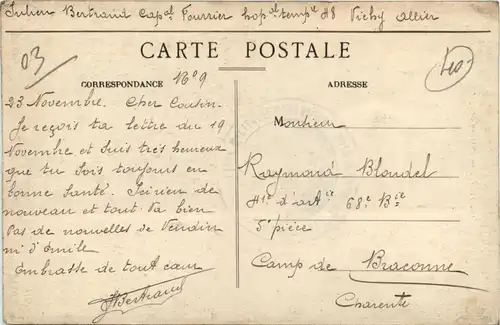 Julien Bertrand Cap^al Fourrier hop^al temp^re 48 Vichy Allier
03
CARTE POSTALE
40-
CORRESPONDANCE
N° 9
ADRESSE
23 Novembre. Cher Cousin.
Je reçois ta lettre du 19
Novembre et suis très heureux
que tu sois toujours en
bonne Santé. Ici rien de
nouveau et tout va bien
Pas de nouvelles de
ni d'Emile
Embrasse de tout cœur
JBertrand
Monsieur
Raymond Blondel
d'art^ie 68^e B^ie
5^e pièce
Camp de Braconne
Charente